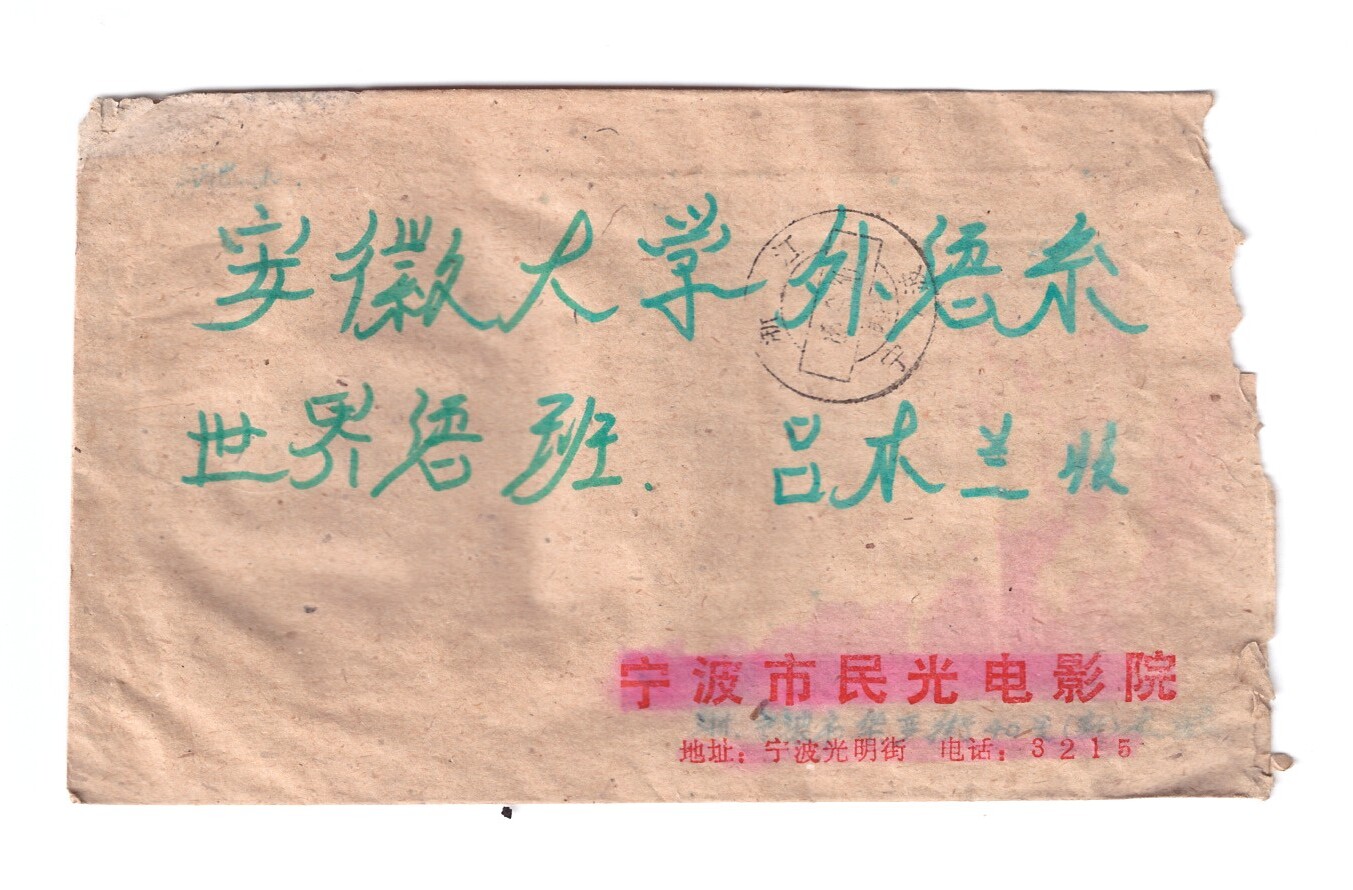 安徽大学外语系
世界语班. 吕木兰收
浙江
宁波
宁波市民光电影院
地址：宁波光明街 电话：3215